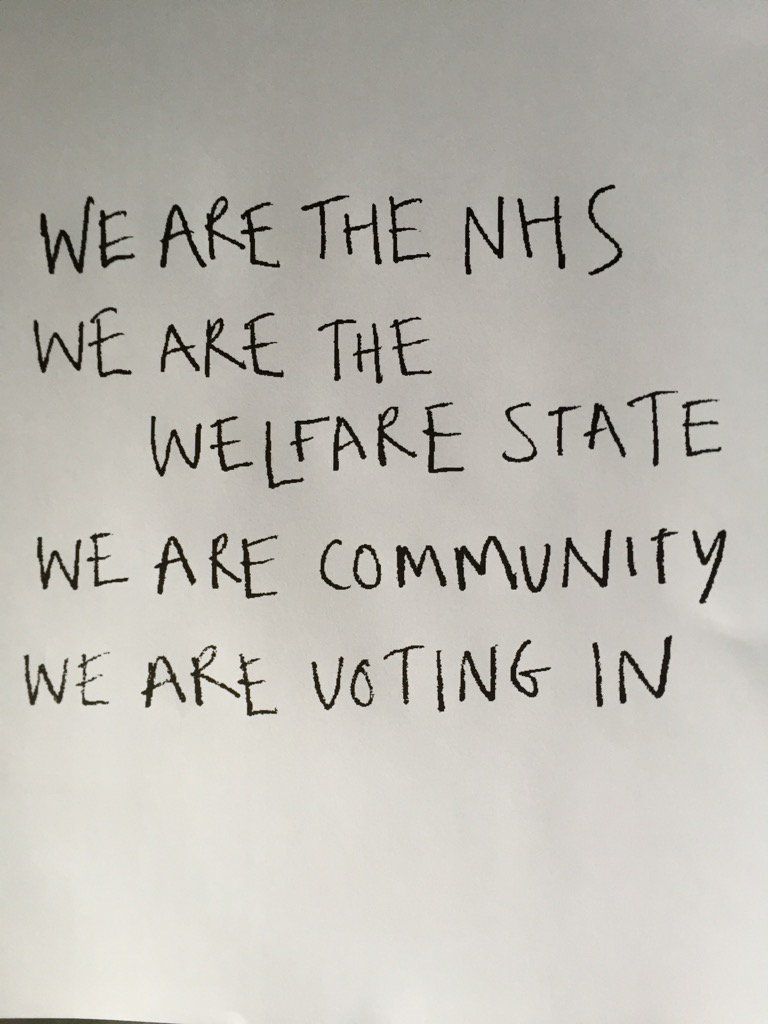 WE ARE THE NHS
WE ARE THE
WELFARE STATE
WE ARE COMMUNITY
WE ARE VOTING IN